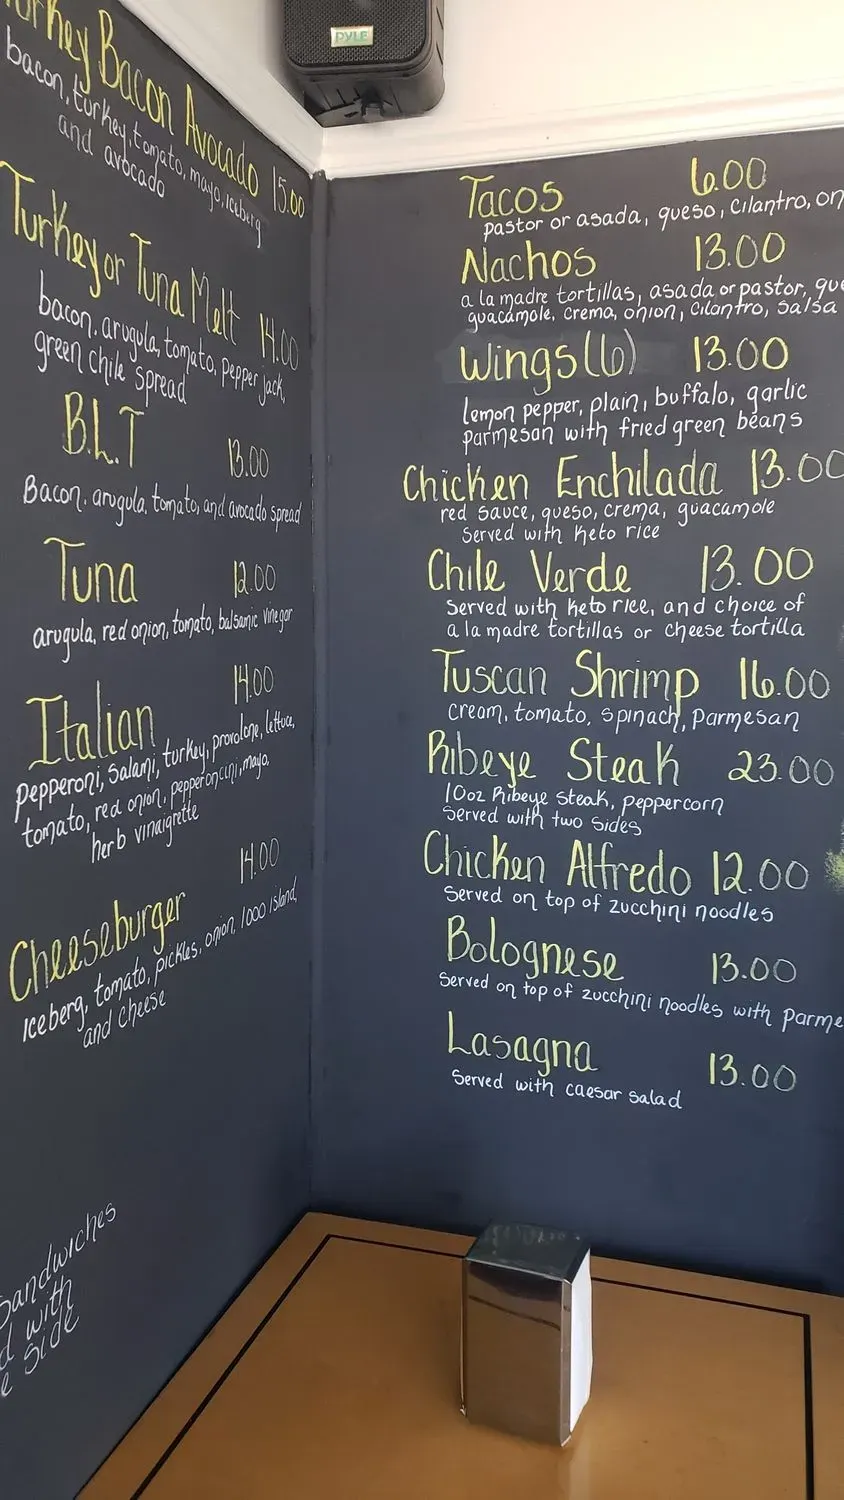 PYLE
Turkey Bacon Avocado 15.00
bacon, turkey, tomato, mayo, iceberg
and avocado
Turkey or Tuna Melt 14.00
bacon, arugula, tomato, pepper jack,
green chile spread
B.L.T 13.00
Bacon, arugula, tomato, and avocado spread
Tuna 12.00
arugula, red onion, tomato, balsamic vinegar
Italian 14.00
pepperoni, salami, turkey, provolone, lettuce,
tomato, red onion, pepperoncini, mayo,
herb vinaigrette
Cheeseburger 14.00
Iceberg, tomato, pickles, onion, 1000 island,
and cheese
Sandwiches
with
side
Tacos 6.00
pastor or asada, queso, cilantro,
Nachos 13.00
a la madre tortillas, asada or pastor,
guacamole, crema, onion, cilantro, salsa
Wings (6) 13.00
lemon pepper, plain, buffalo, garlic
parmesan with fried green beans
Chicken Enchilada 13.00
red sauce, queso, crema, guacamole
Served with keto rice
Chile Verde 13.00
Served with keto rice, and choice of
a la madre tortillas or cheese tortilla
Tuscan Shrimp 16.00
cream, tomato, spinach, Parmesan
Ribeye Steak 23.00
10oz Ribeye steak, peppercorn
Served with two sides
Chicken Alfredo 12.00
Served on top of zucchini noodles
Bolognese 13.00
Served on top of zucchini noodles with
Lasagna 13.00
Served with caesar salad